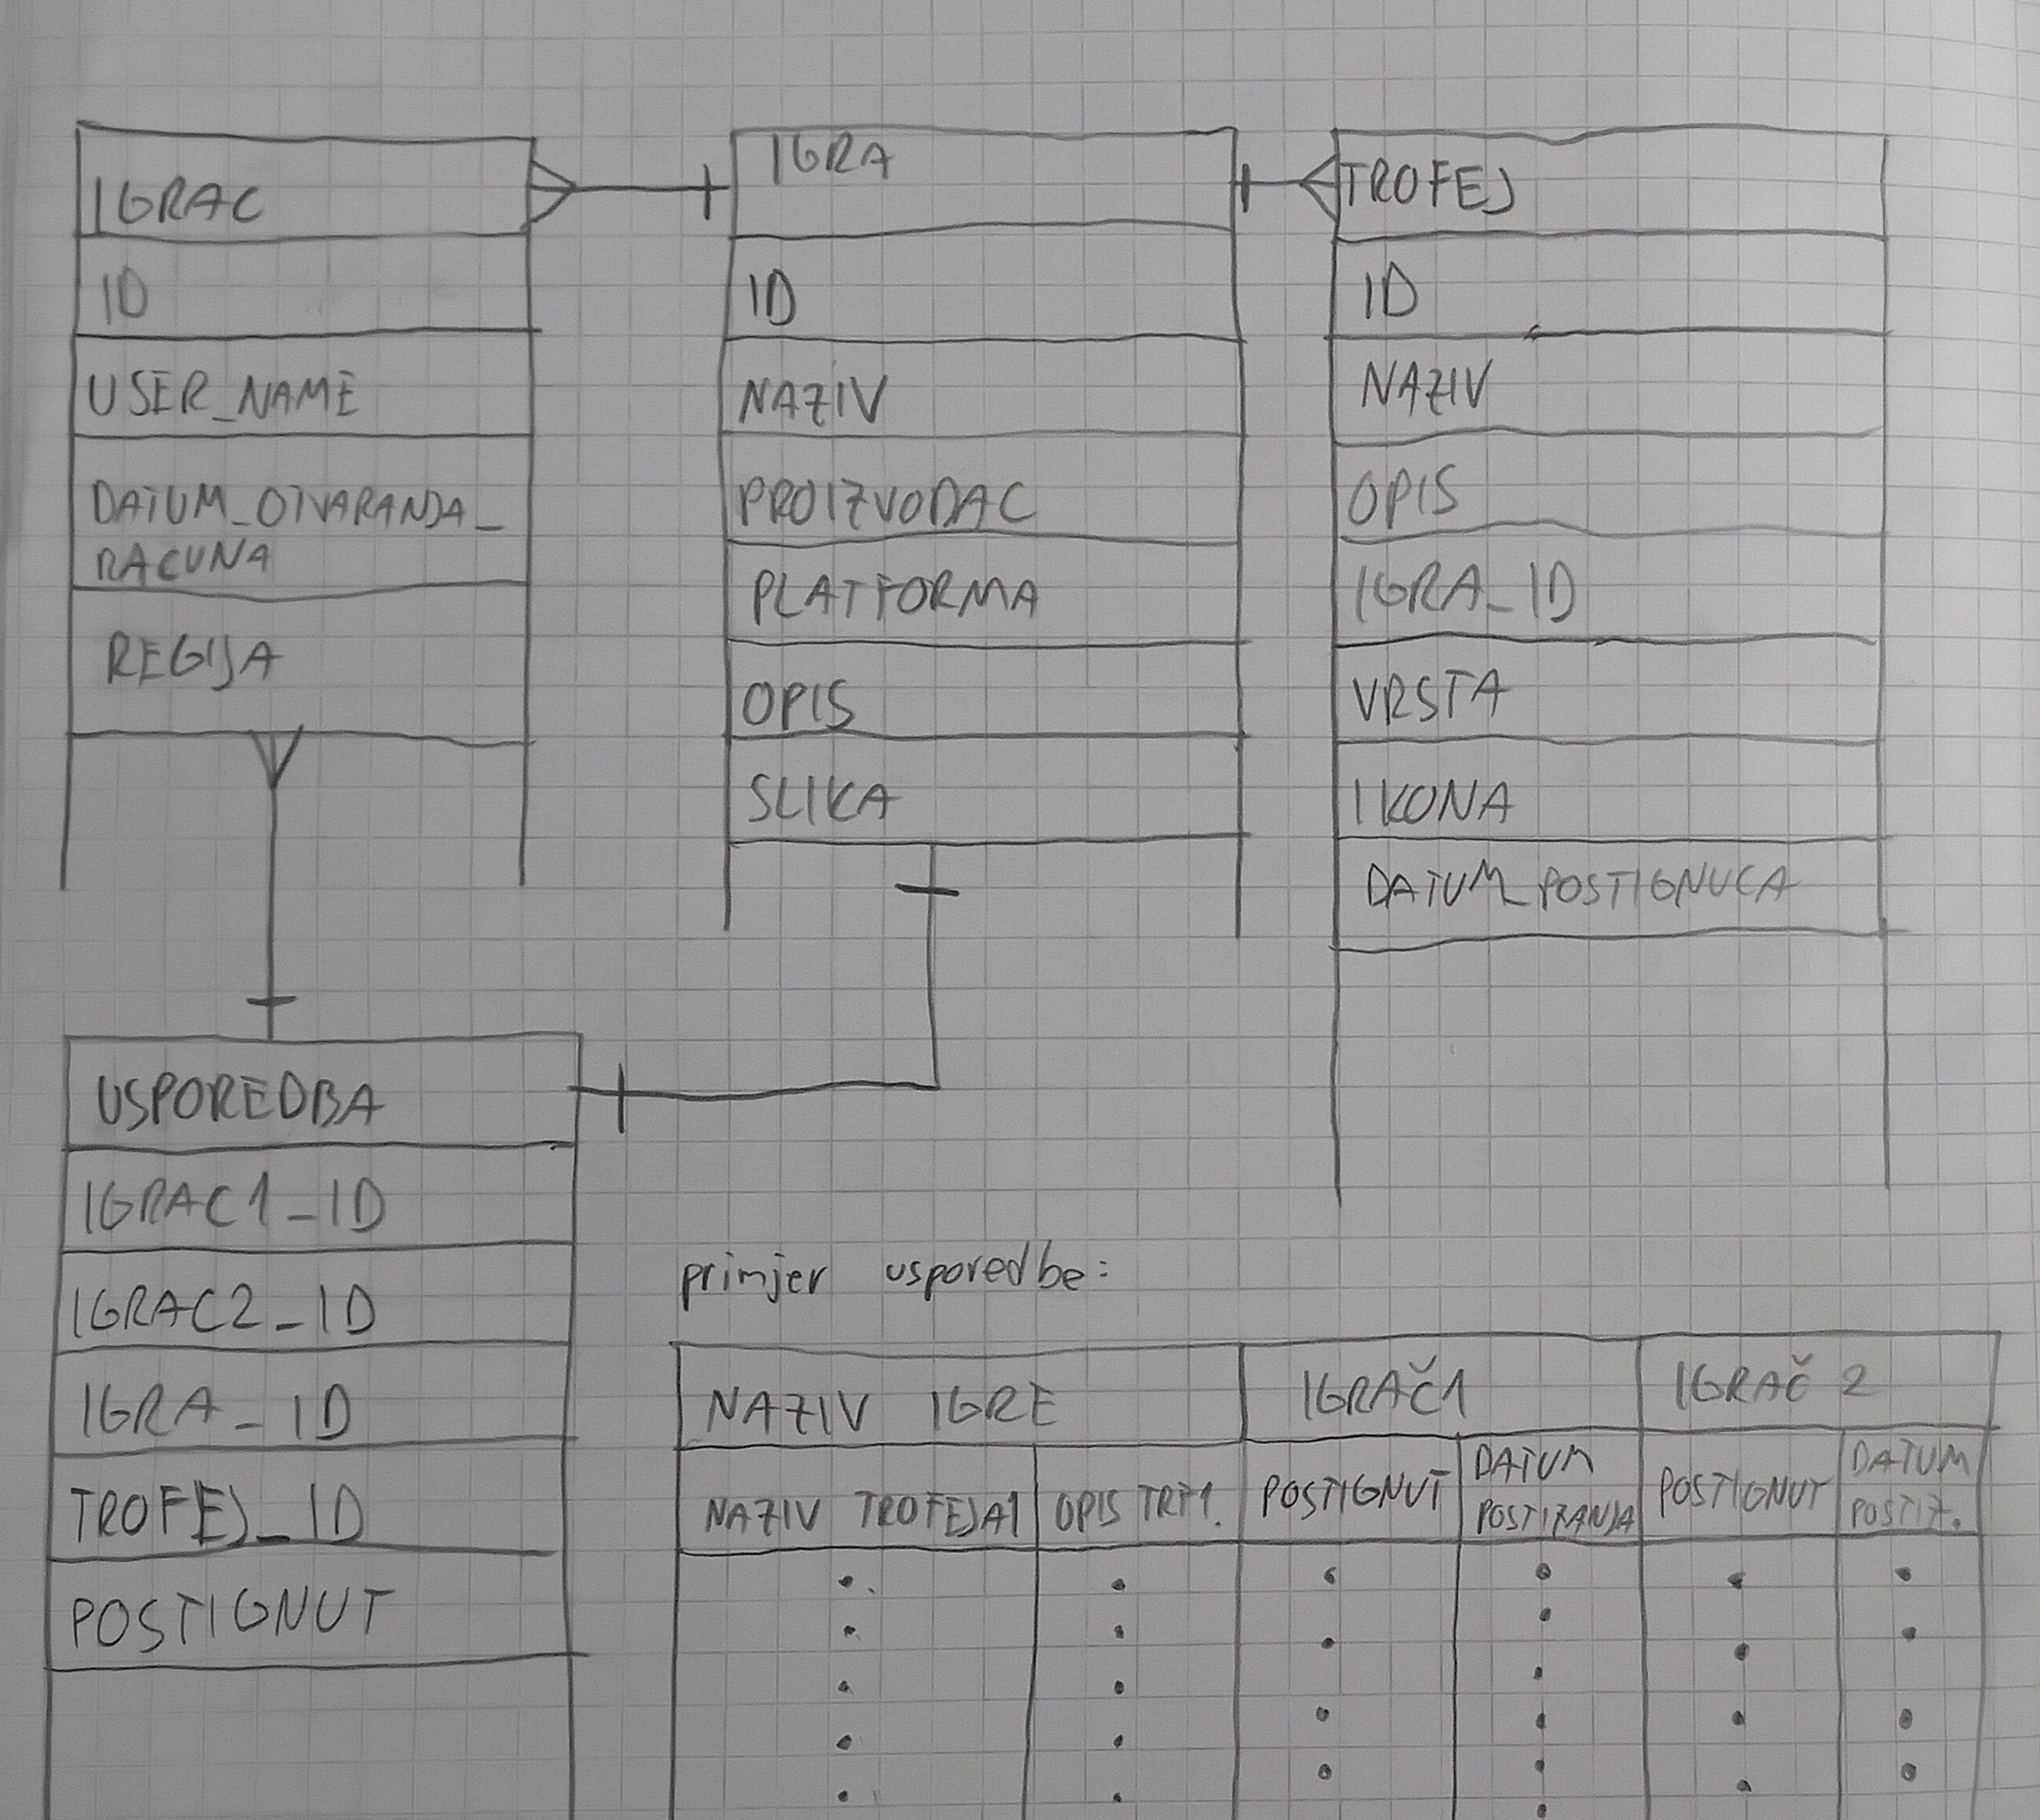 IGRAC
ID
USER_NAME
DATUM_OTVARANJA_
RACUNA
REGIJA
IGRA
ID
NAZIV
PROIZVODAC
PLATFORMA
OPIS
SLIKA
TROFEJ
ID
NAZIV
OPIS
IGRA_ID
VRSTA
IKONA
DATUM_POSTIGNUCA
USPOREDBA
IGRAC1_ID
IGRAC2_ID
IGRA_ID
TROFEJ_ID
POSTIGNUT
primjer usporedbe:
NAZIV IGRE IGRAČ1 IGRAČ 2
NAZIV TROFEJA1 OPIS TRF1. POSTIGNUT DATUM POSTIZANJA POSTIGNUT DATUM POSTIZ.